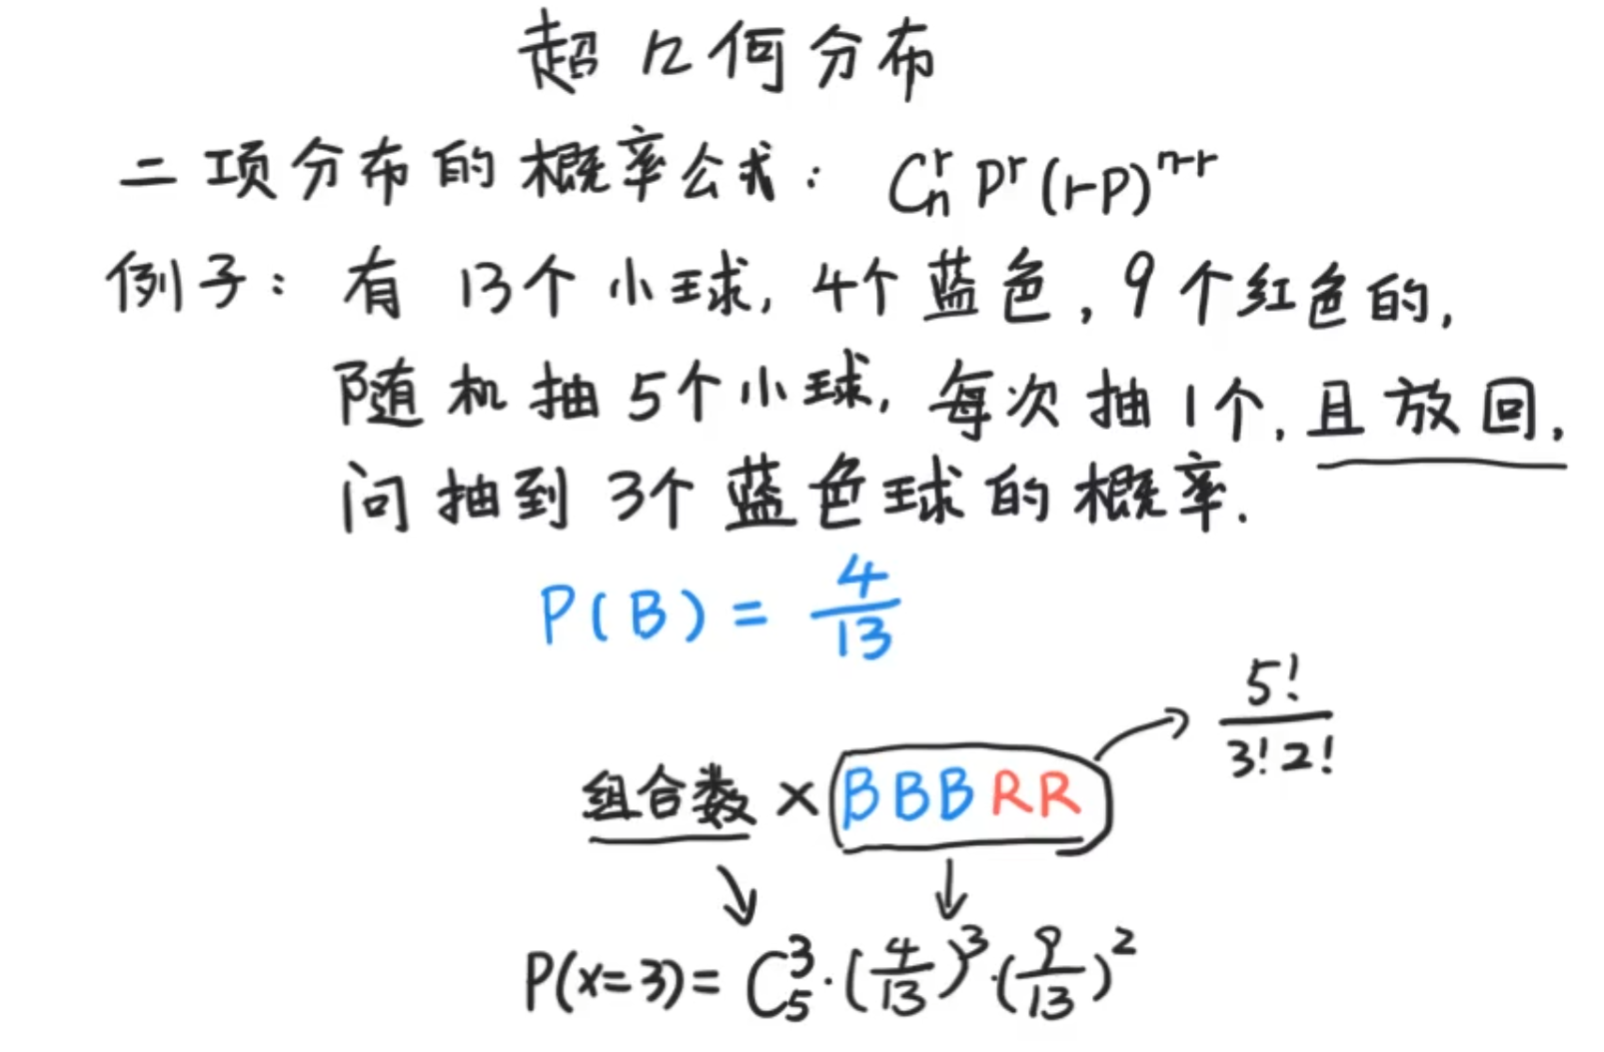 超几何分布
二项分布的概率公式: C_n^r P^r (1-P)^{n-r}
例子: 有 13个小球, 4个蓝色, 9个红色的,
随机抽5个小球, 每次抽1个, 且放回,
问抽到3个蓝色球的概率.
P(B) = 4/13
5!/3!2!
组合数 × BBBRR
P(x=3) = C_5^3 · (4/13)^3 · (9/13)^2